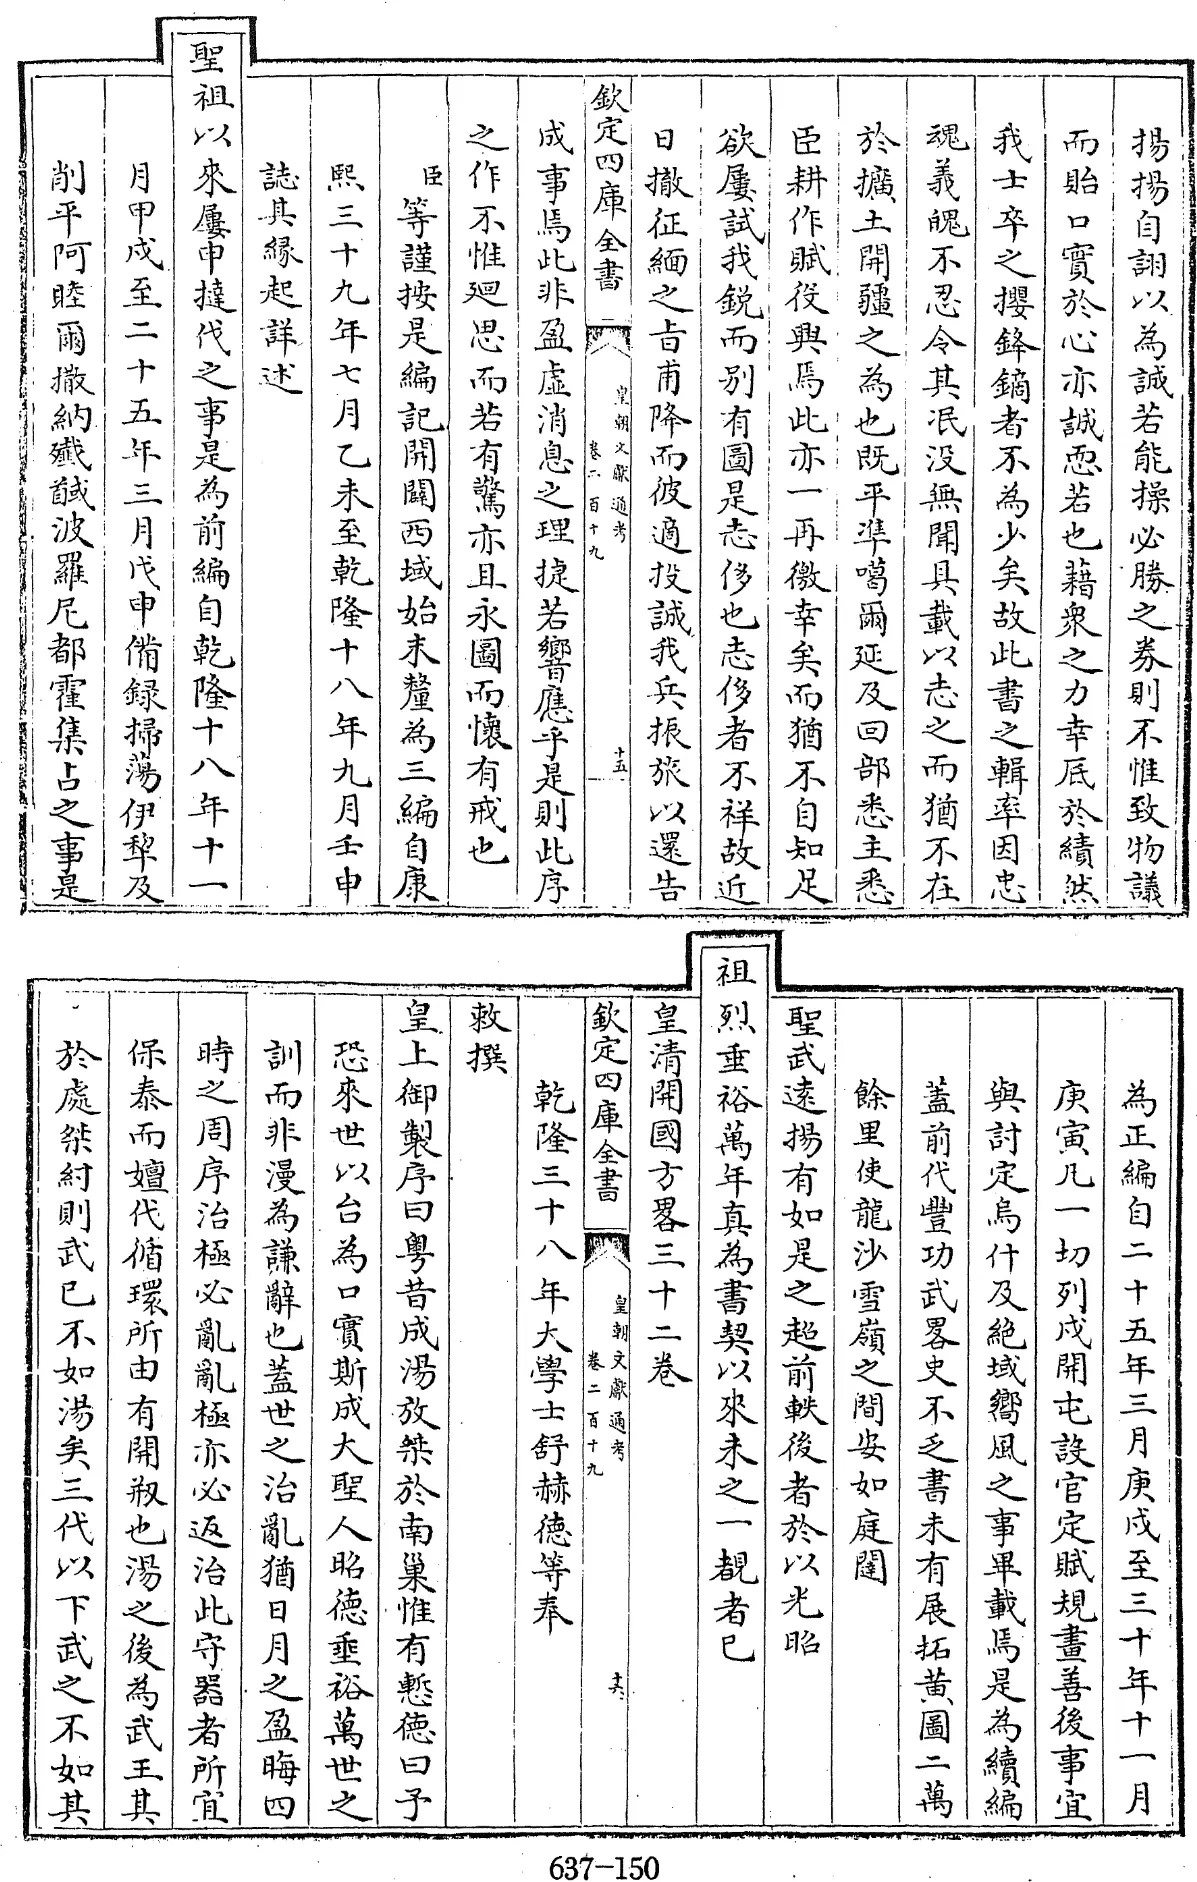 揚揚自詡以為誠若能操必勝之券則不惟致物議
而貽口實於心亦誠恧若也藉衆之力幸底於績然
我士卒之攖鋒鏑者不為少矣故此書之輯率因忠
魂義魄不忍令其泯没無聞具載以志之而猶不在
於擴土開疆之為也既平凖噶爾延及回部悉主悉
臣耕作賦役興焉此亦一再徼幸矣而猶不自知足
欲屢試我鋭而别有圖是志侈也志侈者不祥故近
日撤征緬之㫖甫降而彼適投誠我兵振旅以還告
欽定四庫全書
皇朝文獻通考
卷二百十九
十五
成事焉此非盈虚消息之理捷若響應乎是則此序
之作不惟廻思而若有驚亦且永圖而懷有戒也
臣等謹按是編記開闢西域始末釐為三編自康
熙三十九年七月乙未至乾隆十八年九月壬申
誌其縁起詳述
聖祖以來屢申撻伐之事是為前編自乾隆十八年十一
月甲戍至二十五年三月戊申備録掃蕩伊犂及
削平阿睦爾撒納殱馘波羅尼都霍集占之事是
為正編自二十五年三月庚戍至三十年十一月
庚寅凡一切列戍開屯設官定賦規畫善後事宜
與討定烏什及絶域嚮風之事畢載焉是為續編
蓋前代豐功武畧史不乏書未有展拓黄圖二萬
餘里使龍沙雪嶺之間安如庭闥
聖武逺揚有如是之超前軼後者於以光昭
祖烈垂裕萬年真為書契以來未之一覩者已
皇清開國方畧三十二卷
欽定四庫全書
皇朝文獻通考
卷二百十九
十六
乾隆三十八年大學士舒赫德等奉
敕撰
皇上御製序曰粤昔成湯放桀於南巢惟有慙德曰予
恐來世以台為口實斯成大聖人昭德垂裕萬世之
訓而非漫為謙辭也蓋世之治亂猶日月之盈晦四
時之周序治極必亂亂極亦必返治此守器者所宜
保泰而嬗代循環所由有開剙也湯之後為武王其
於處桀紂則武已不如湯矣三代以下武之不如其
637-150